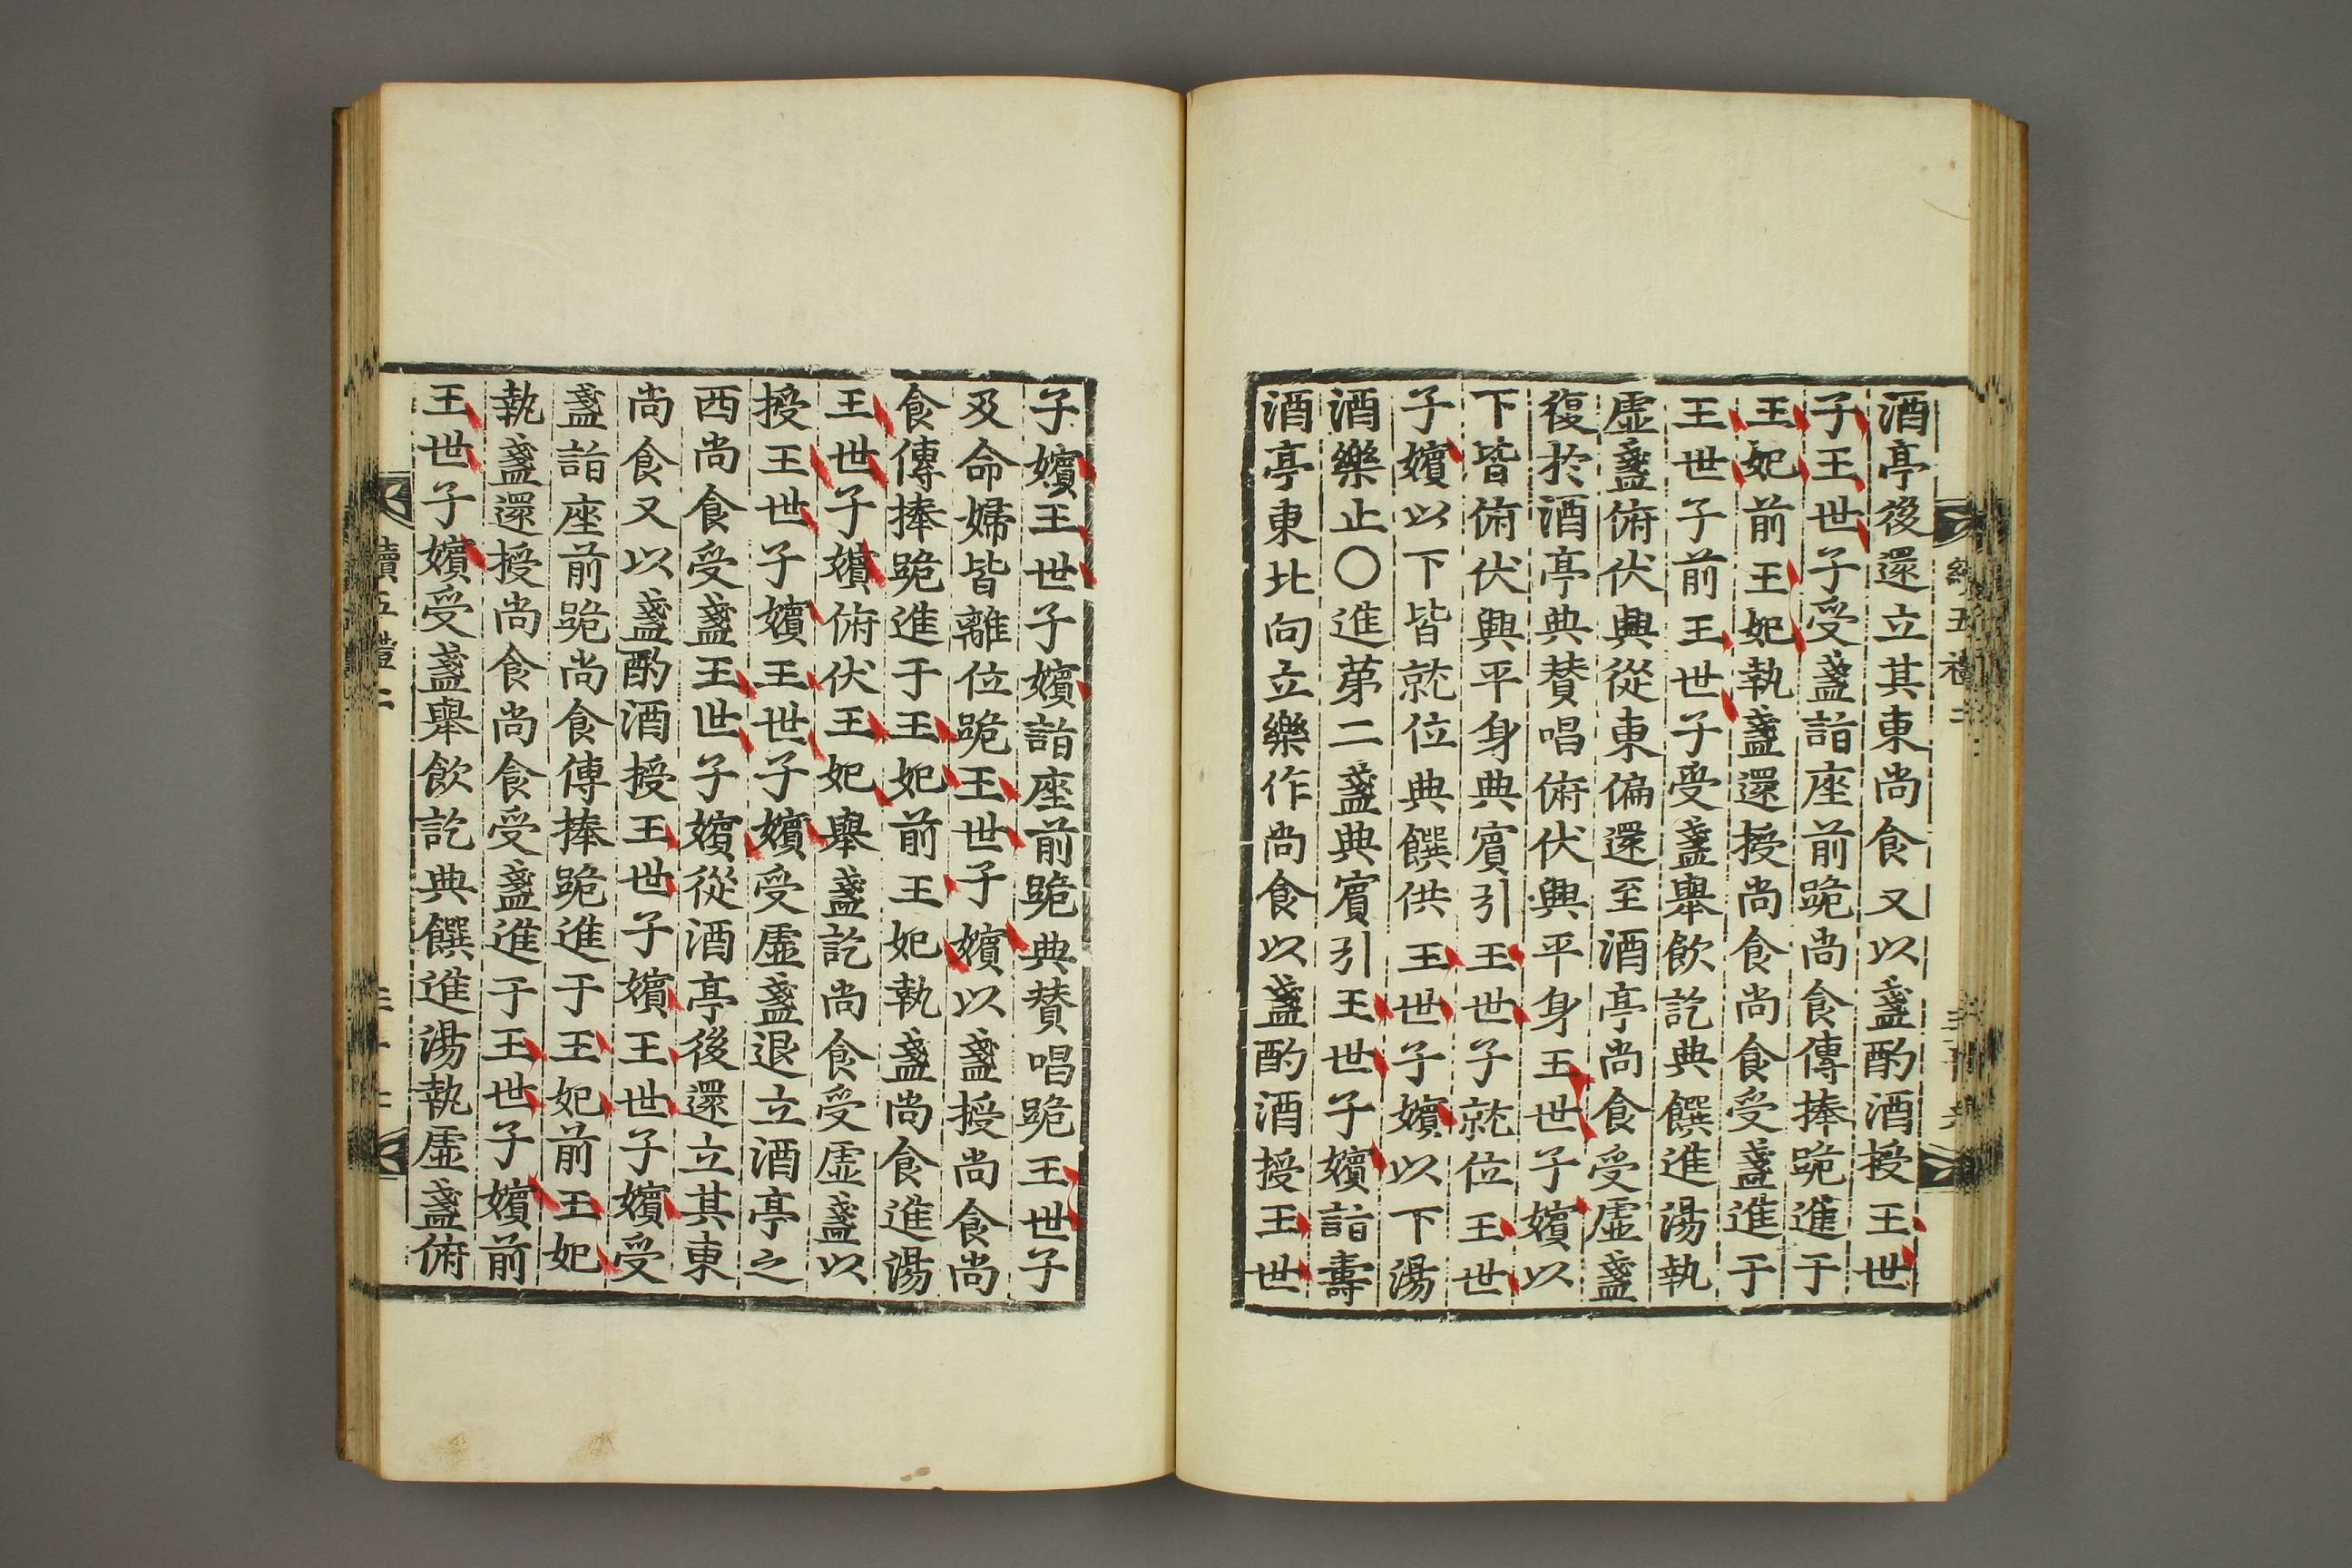 酒亭後還立其東尚食又以盞酌酒授王世
子王世子受盞詣座前跪尚食傳捧跪進于
王妃前王妃執盞還授尚食尚食受盞進于
王世子前王世子受盞舉飮訖典饌進湯執
虛盞俯伏興從東偏還至酒亭尚食受虛盞
復於酒亭典贊唱俯伏興平身王世子嬪以
下皆俯伏興平身典賓引王世子就位王世
子嬪以下皆就位典饌供王世子嬪以下湯
酒樂止○進第二盞典賓引王世子嬪詣壽
酒亭東北向立樂作尚食以盞酌酒授王世
子嬪王世子嬪詣座前跪典贊唱跪王世子
及命婦皆離位跪王世子嬪以盞授尚食尚
食傳捧跪進于王妃前王妃執盞尚食進湯
王世子嬪俯伏王妃舉盞訖尚食受虛盞以
授王世子嬪王世子嬪受虛盞退立酒亭之
西尚食受盞王世子嬪從酒亭後還立其東
尚食又以盞酌酒授王世子嬪王世子嬪受
盞詣座前跪尚食傳捧跪進于王妃前王妃
執盞還授尚食尚食受盞進于王世子嬪前
王世子嬪受盞舉飮訖典饌進湯執虛盞俯
續五禮二